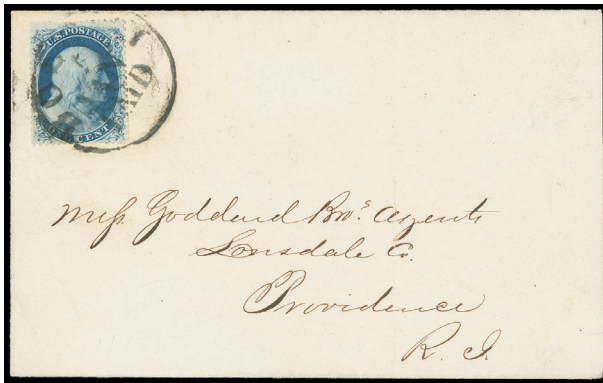 U.S. POSTAGE
ONE CENT
PAID
Mess. Goddard Bros. Agents
Lonsdale Co.
Providence
R. I.